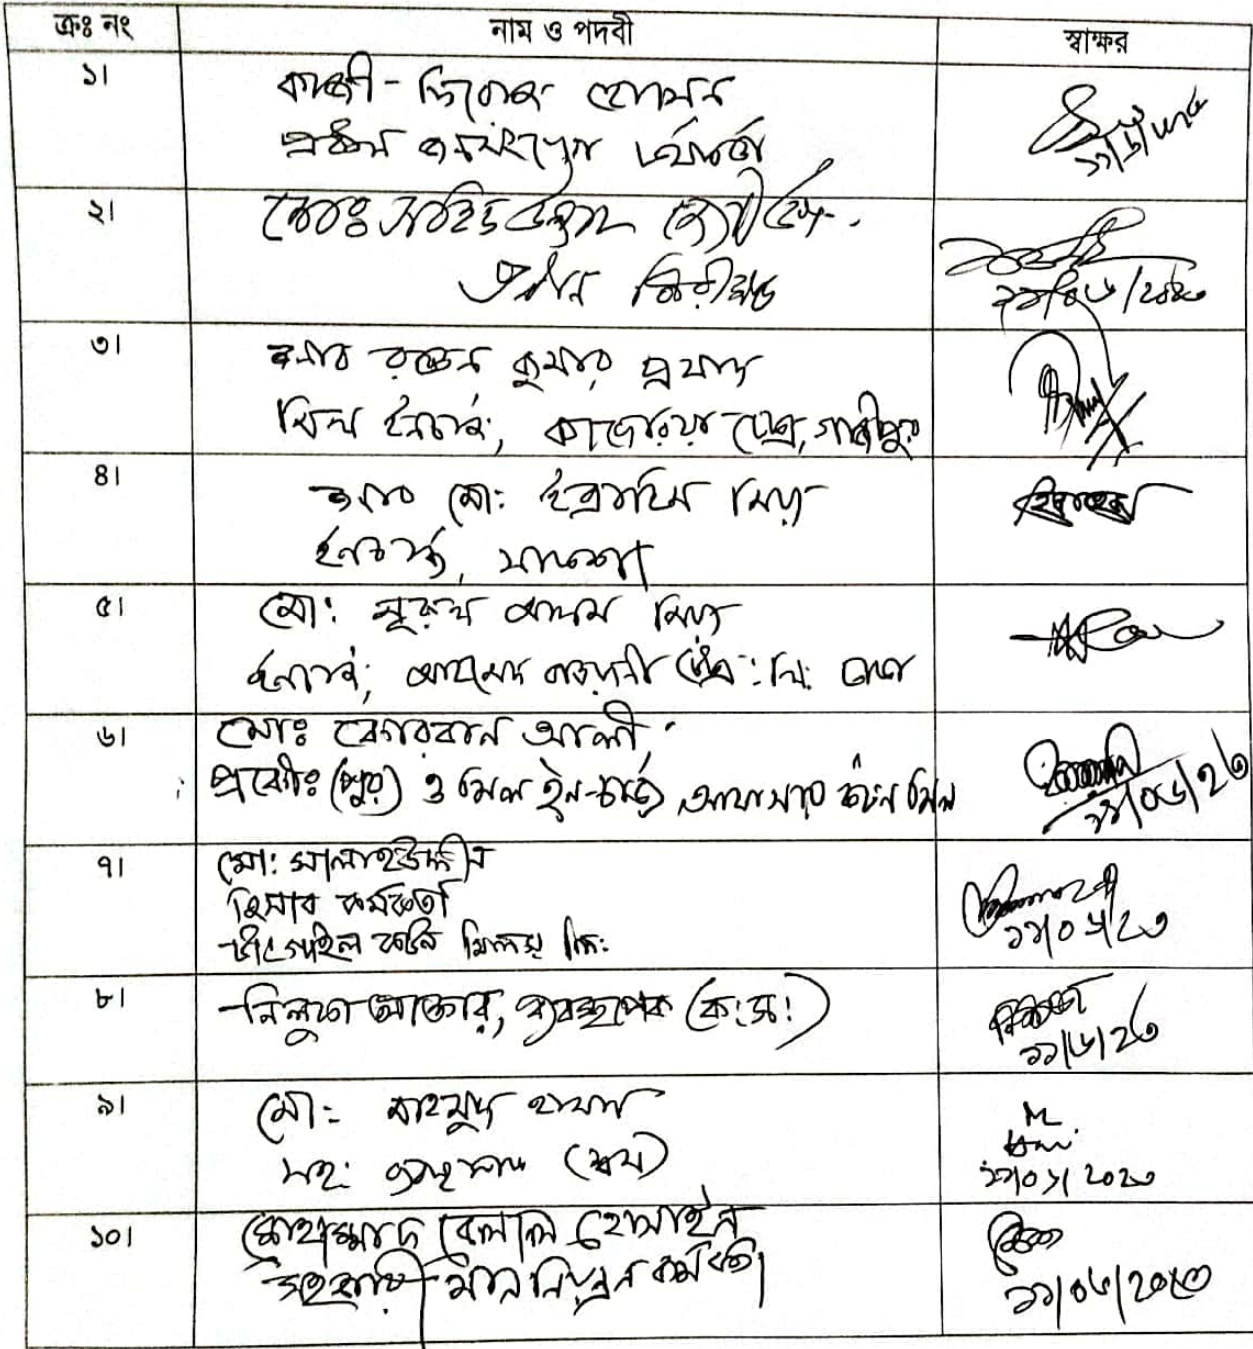 ক্রঃ নং নাম ও পদবী স্বাক্ষর
১। কাজী - ফিরোজ হোসেন
প্রধান জনসংযোগ কর্মকর্তা
২। মোঃ
প্রধান নিরীক্ষক
২১/০৬/২০২৩
৩। জনাব রতন কুমার প্রসাদ
মিল ইনচার্জ, কাদেরিয়া টেক্স, গাজীপুর
৪। জনাব মো: ইব্রাহিম মিয়া
ইনচার্জ,
৫। মো: নুরুল আলম মিয়া
ইনচার্জ, আহমেদ বাওয়ানী টেক্স: লি: ঢাকা
৬। মোঃ কোরবান আলী,
প্রকৌঃ (পুর) ও মিল ইন-চার্জ, কটন মিল
২১/০৬/২৩
৭। মো: সালাহউদ্দীন
হিসাব কর্মকর্তা
টাংগাইল কটন মিলস্ লি:
২১/০৬/২৩
৮। নিলুফা আক্তার, ব্যবস্থাপক (ক:স:)
২১/৬/২৩
৯। মো: মাহমুদ হাসান
সহ:
২১/০৬/২০২৩
১০। মোহাম্মদ বেলাল হোসাইন
সহকারী মান নিয়ন্ত্রন কর্মকর্তা
২১/০৬/২০২৩